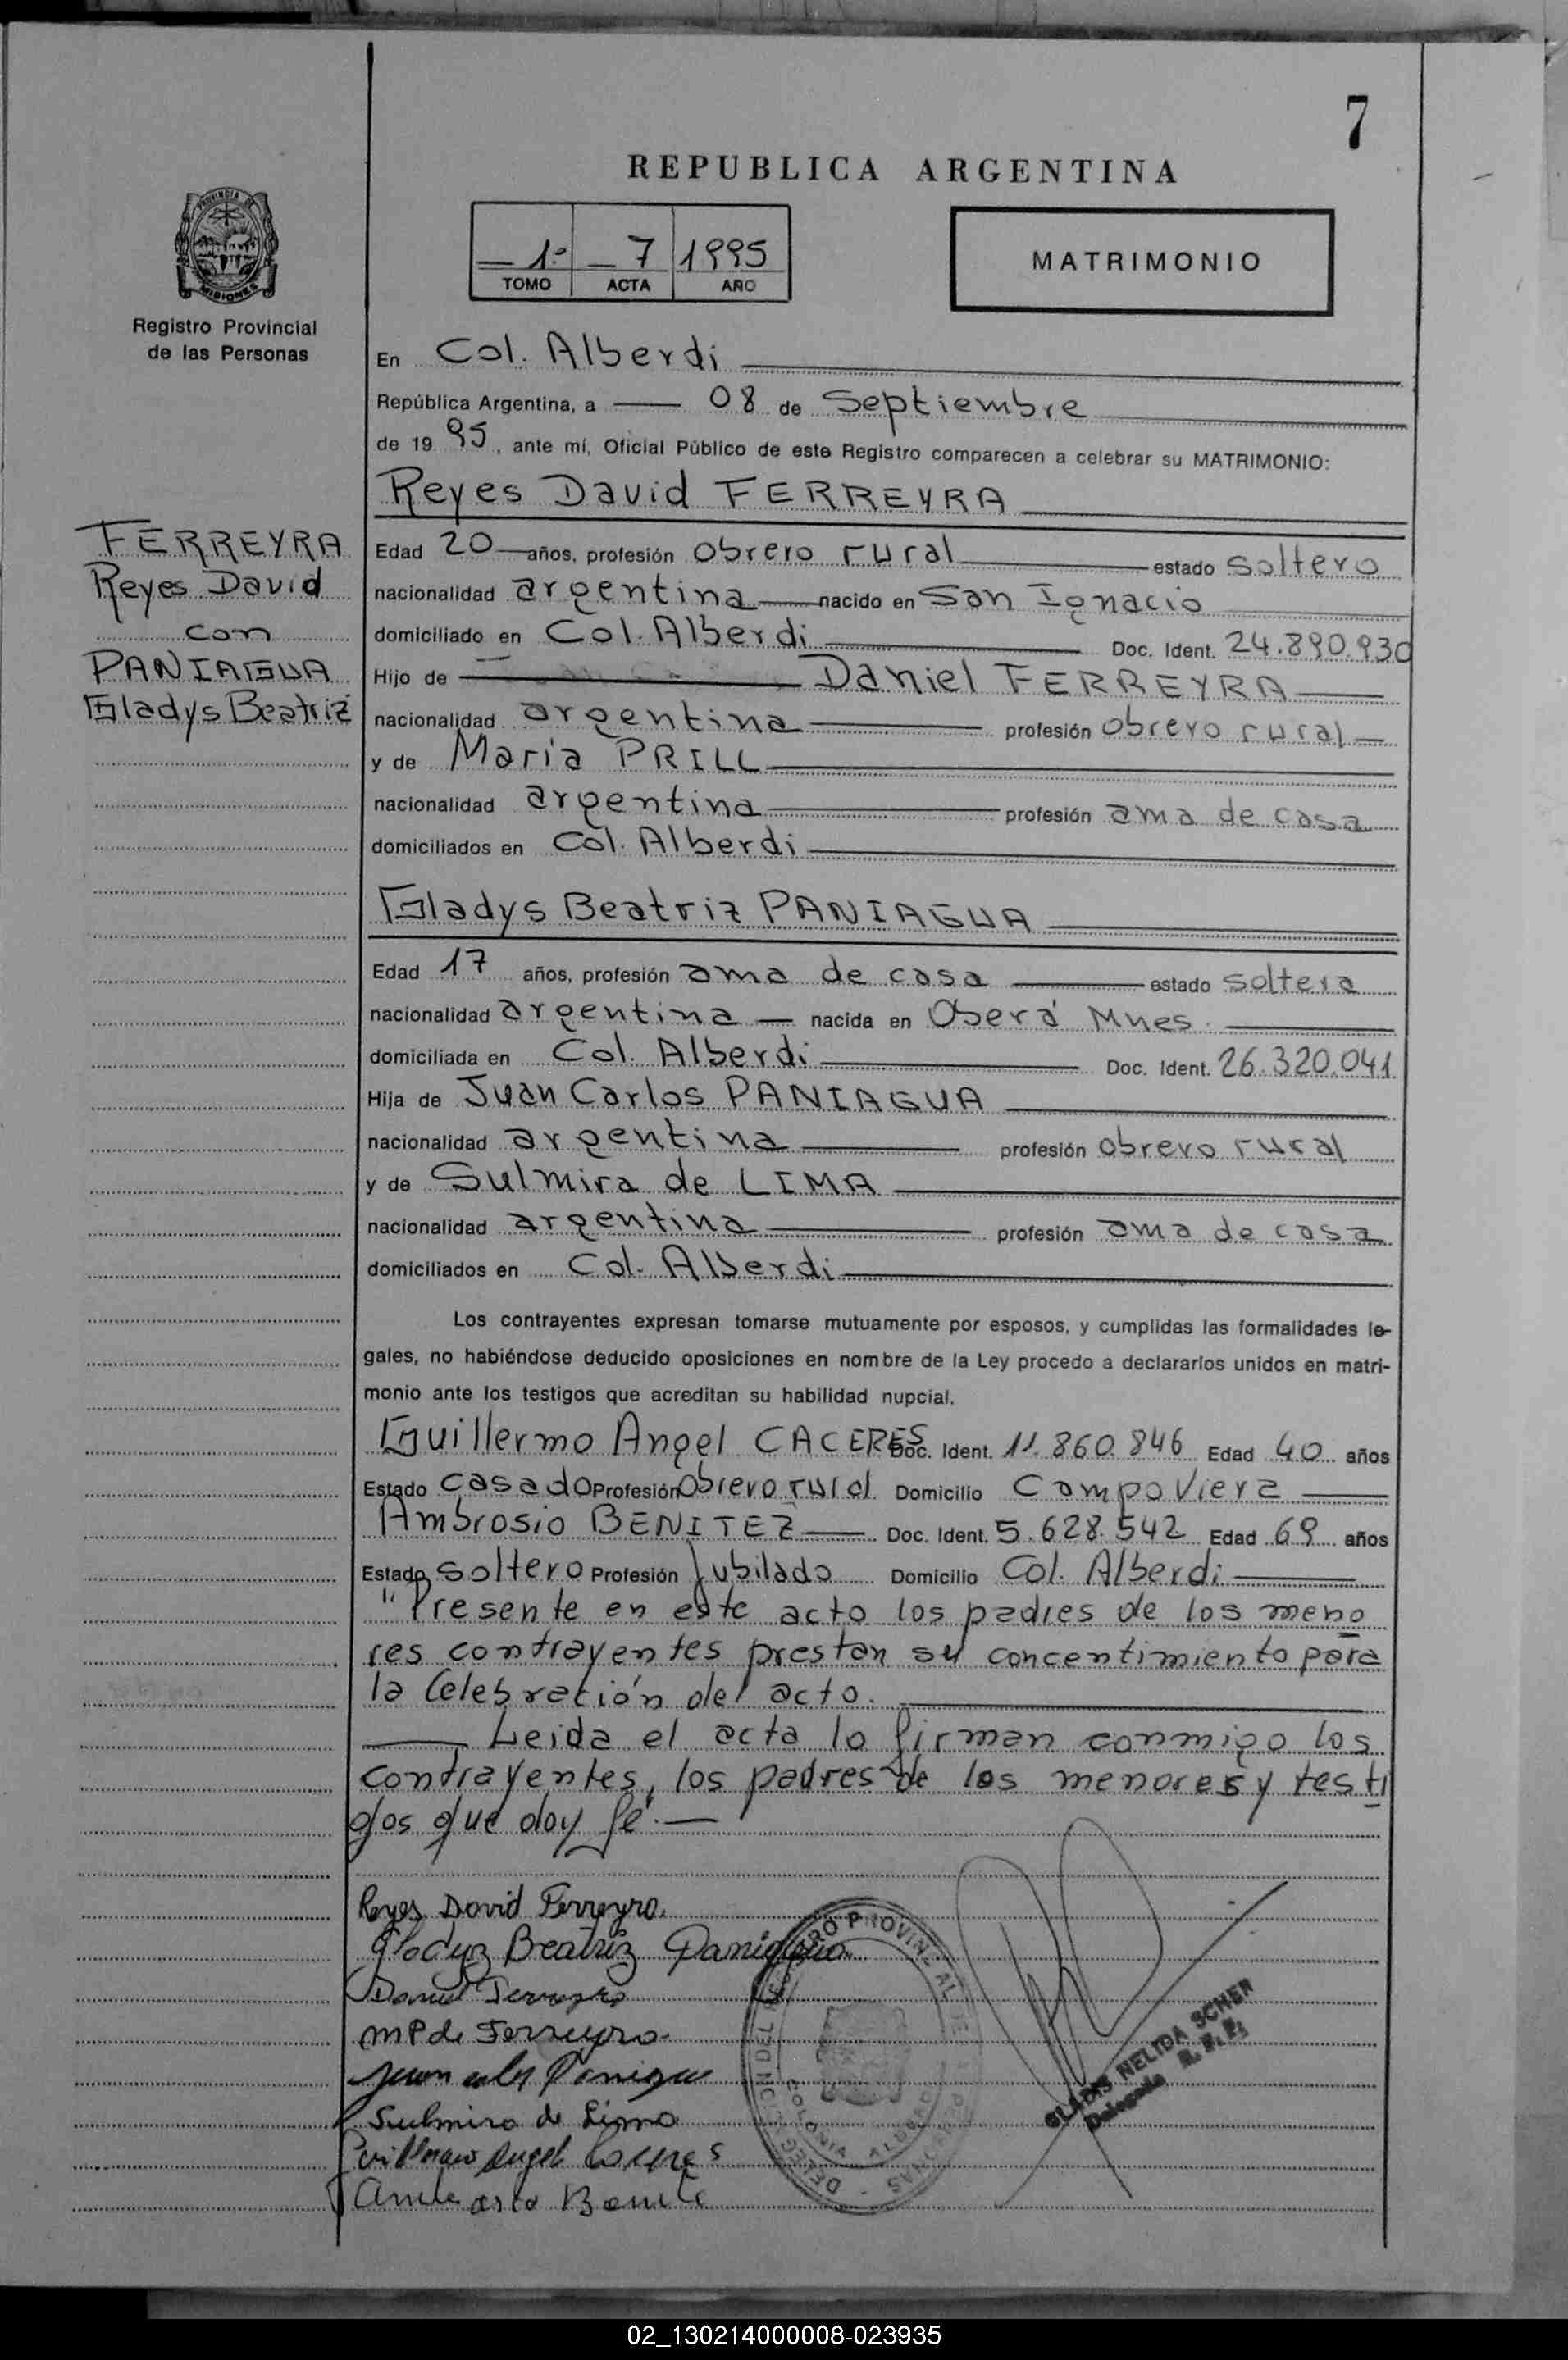 7
REPUBLICA ARGENTINA
PROVINCIA DE
MISIONES
Registro Provincial
de las Personas
1º 7 1995
TOMO ACTA AÑO
MATRIMONIO
En Col. Alberdi
República Argentina, a 08 de Septiembre
de 19 95, ante mí, Oficial Público de este Registro comparecen a celebrar su MATRIMONIO:
Reyes David FERREYRA
FERREYRA
Reyes David
con
PANIAGUA
Gladys Beatriz
Edad 20 años, profesión obrero rural estado soltero
nacionalidad argentina nacido en San Ignacio
domiciliado en Col. Alberdi Doc. Ident. 24.890.930
Hijo de Daniel FERREYRA
nacionalidad argentina profesión obrero rural
y de Maria PRILL
nacionalidad argentina profesión ama de casa
domiciliados en Col. Alberdi
Gladys Beatriz PANIAGUA
Edad 17 años, profesión ama de casa estado soltera
nacionalidad argentina nacida en Oberá Mnes.
domiciliada en Col. Alberdi Doc. Ident. 26.320.041
Hija de Juan Carlos PANIAGUA
nacionalidad argentina profesión obrero rural
y de Sulmira de LIMA
nacionalidad argentina profesión ama de casa
domiciliados en Col. Alberdi
Los contrayentes expresan tomarse mutuamente por esposos, y cumplidas las formalidades le-
gales, no habiéndose deducido oposiciones en nombre de la Ley procedo a declararlos unidos en matri-
monio ante los testigos que acreditan su habilidad nupcial.
Guillermo Angel CACERES Doc. Ident. 11.860.846 Edad 40 años
Estado casado Profesión obrero rural Domicilio Campo Viera
Ambrosio BENITEZ Doc. Ident. 5.628.542 Edad 69 años
Estado soltero Profesión Jubilado Domicilio Col. Alberdi
"Presente en este acto los padres de los meno
res contrayentes prestan su concentimiento para
la Celebración del acto.
Leida el acta lo firman conmigo los
contrayentes, los padres de los menores y testi
gos que doy fé.
Reyes David Ferreyra.
Gladyz Beatriz Paniagua
Daniel Ferreyra
MP de Ferreyra
Juan Carlos Paniagua
Sulmira de Lima
Guillermo Angel Caceres
Ambrosio Benite
GLADIS NELIDA SCHER
Delegada R.P.P.
02_130214000008-023935